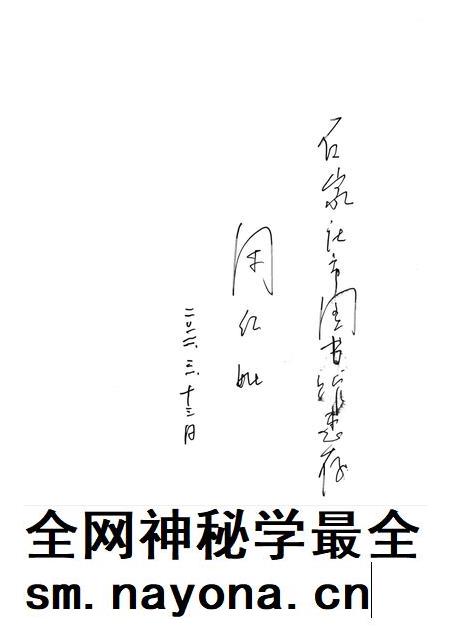 石家庄市图书馆惠存
三.十三日
全网神秘学最全
sm.nayona.cn